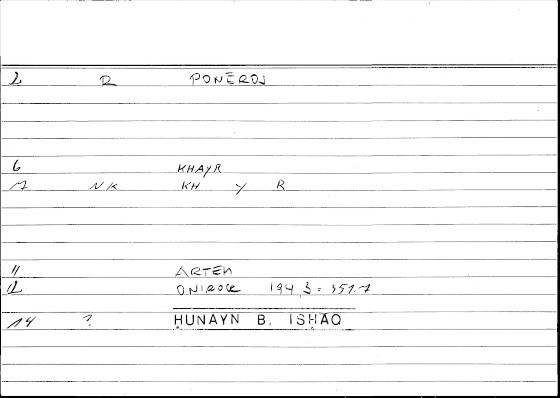 2 R PONEROS
6 KHAYR
7 NK KH Y R
11 ARTEM
12 ONIROCR 194,3 = 357.7
14 ? ḤUNAYN B. ISḤAQ